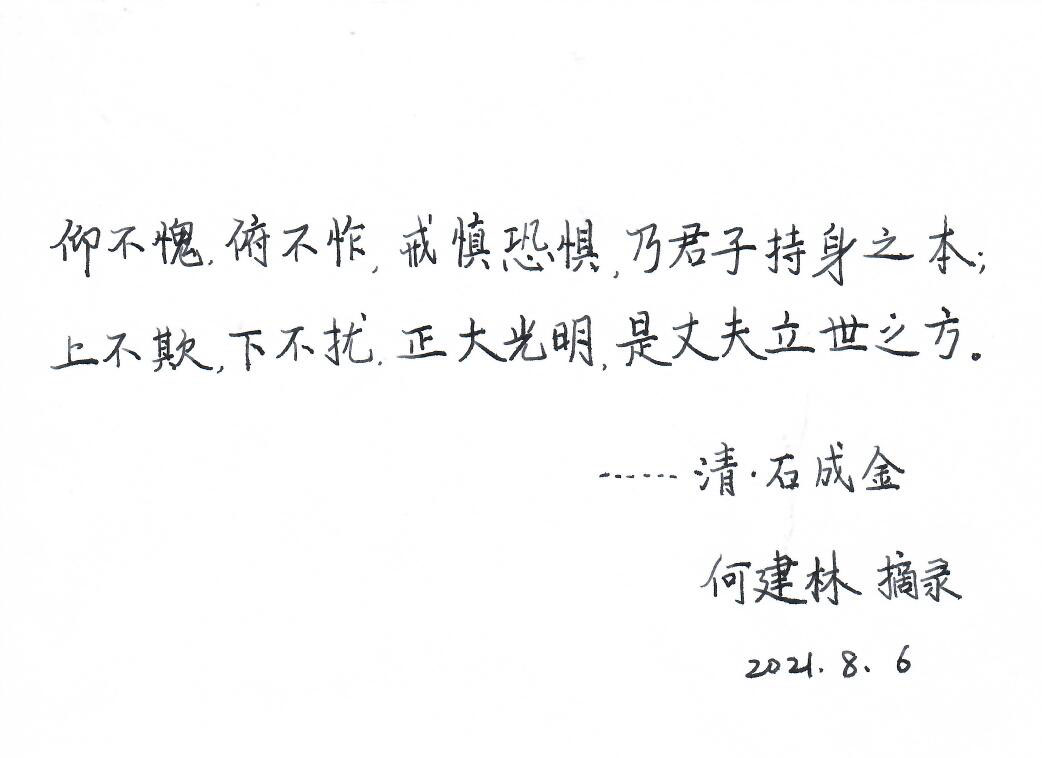 仰不愧,俯不怍,戒慎恐惧,乃君子持身之本;
上不欺,下不扰,正大光明,是丈夫立世之方。
……清·石成金
何建林 摘录
2021.8.6